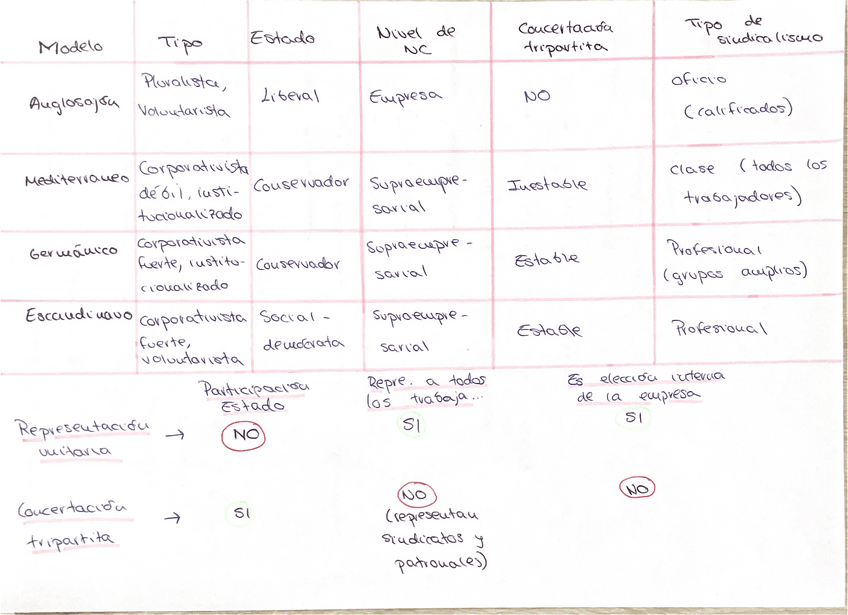 Modelo Tipo Estado Nivel de NC Concertación tripartita Tipo de sindicalismo
Anglosajón Pluralista, Voluntarista Liberal Empresa NO Oficio (calificados)
Mediterraneo Corporativista débil, institucionalizado Conservador Supraempre-sarial Inestable Clase (todos los trabajadores)
Germánico Corporativista fuerte, institucionalizado Conservador Supraempre-sarial Estable Profesional (grupos amplios)
Escandinavo Corporativista fuerte, voluntarista Social-demócrata Supraempre-sarial Estable Profesional
Participación Estado Repre. a todos los trabaja... Es elección interna de la empresa
Representación unitaria → NO SI SI
Concertación tripartita → SI NO (representan sindicatos y patronales) NO